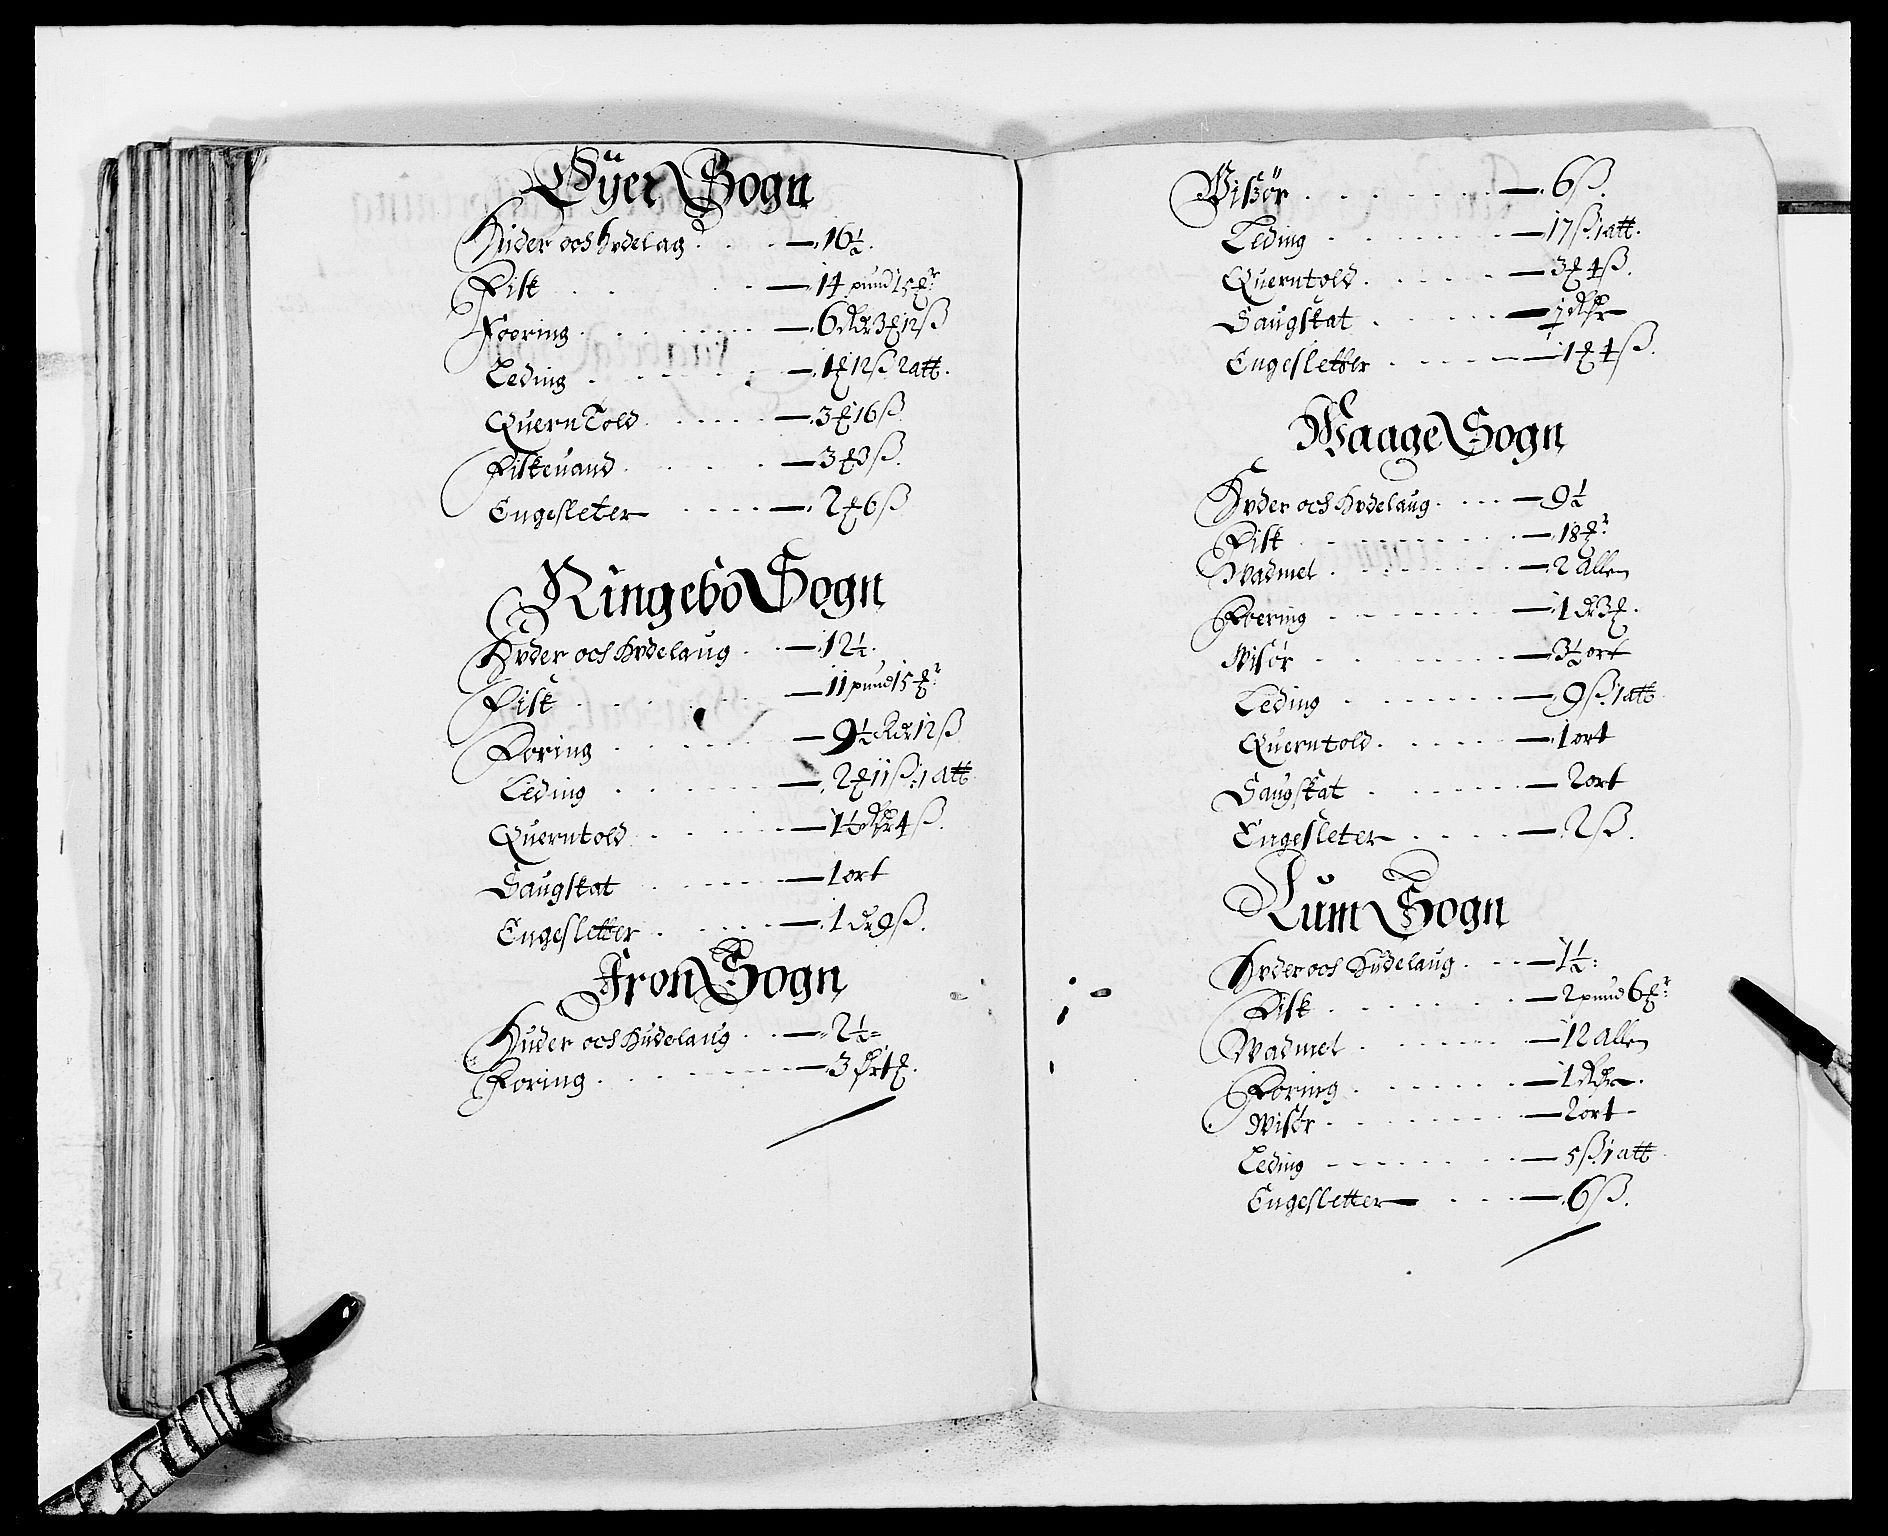 Öyer Sogn
Hider och Hvdelag . . . . — 16½.
Fisk . . . — 14 pund 15 ℔r
Foering . . . . . . — 6 Rdr 3 ℔ 12 ß
Leding . . . . . — 1 ℔ 12 ß 2 att.
Quern Told . . . . . — 3 ℔ 16 ß.
Fiskeuand . . . . . — 3 ℔ 3 ß.
Engesleter . . . . — 2 ℔ 6 ß
Ringebo Sogn
Hvder och Hvdelaug . . — 12½.
Fisk . . . . . — 11 pund 15 ℔r
Foring . . . . . — 9½ Rdr 12 ß
Leding . . . . . — 2 ℔ 11 ß: 1 att
Querntold . . . . . — 1½ Rdr 4 ß.
Saugskat . . . . . — 1 ort
Engesletter . . . . . — 1 dr 9 ß.
Fron Sogn
Huder och Hudelaug . . — 2½
Foring . . . . . . . — 3 Ört ℔.
Visör . . . . . . . — 6 ß.
Leding . . . . . . — 17 ß 1 att.
Querntold . . . . . — 3 ℔ 4 ß.
Saugskat . . . . . — ½ Rdr
Engesletter . . . . . — 1 ℔ 4 ß.
Waage Sogn
Hvder och Hvdelaug . . . . — 9½
Fisk . . . . . . . — 18 ℔r
Wadmel . . . . . . — 2 Allen
Foering . . . . . . — 1 dr 3 ℔.
Wisör . . . . . . — 3½ ort
Leding . . . . . . — 9 ß 1 att
Querntold . . . . . — 1 ort
Saugskat . . . . . — 2 ort
Engesleter . . . . — 2 ß.
Lum Sogn
Hvder och Hudelaug . . . — 1½:
Fisk . . . . . . — 2 pund 6 ℔r
Wadmel . . . . . . — 12 Allen
Foring . . . . . . — 1 Rdr.
Wisör . . . . . . — 2 ort
Leding . . . . . . — 5 ß 1 att
Engesletter . . . — 6 ß.